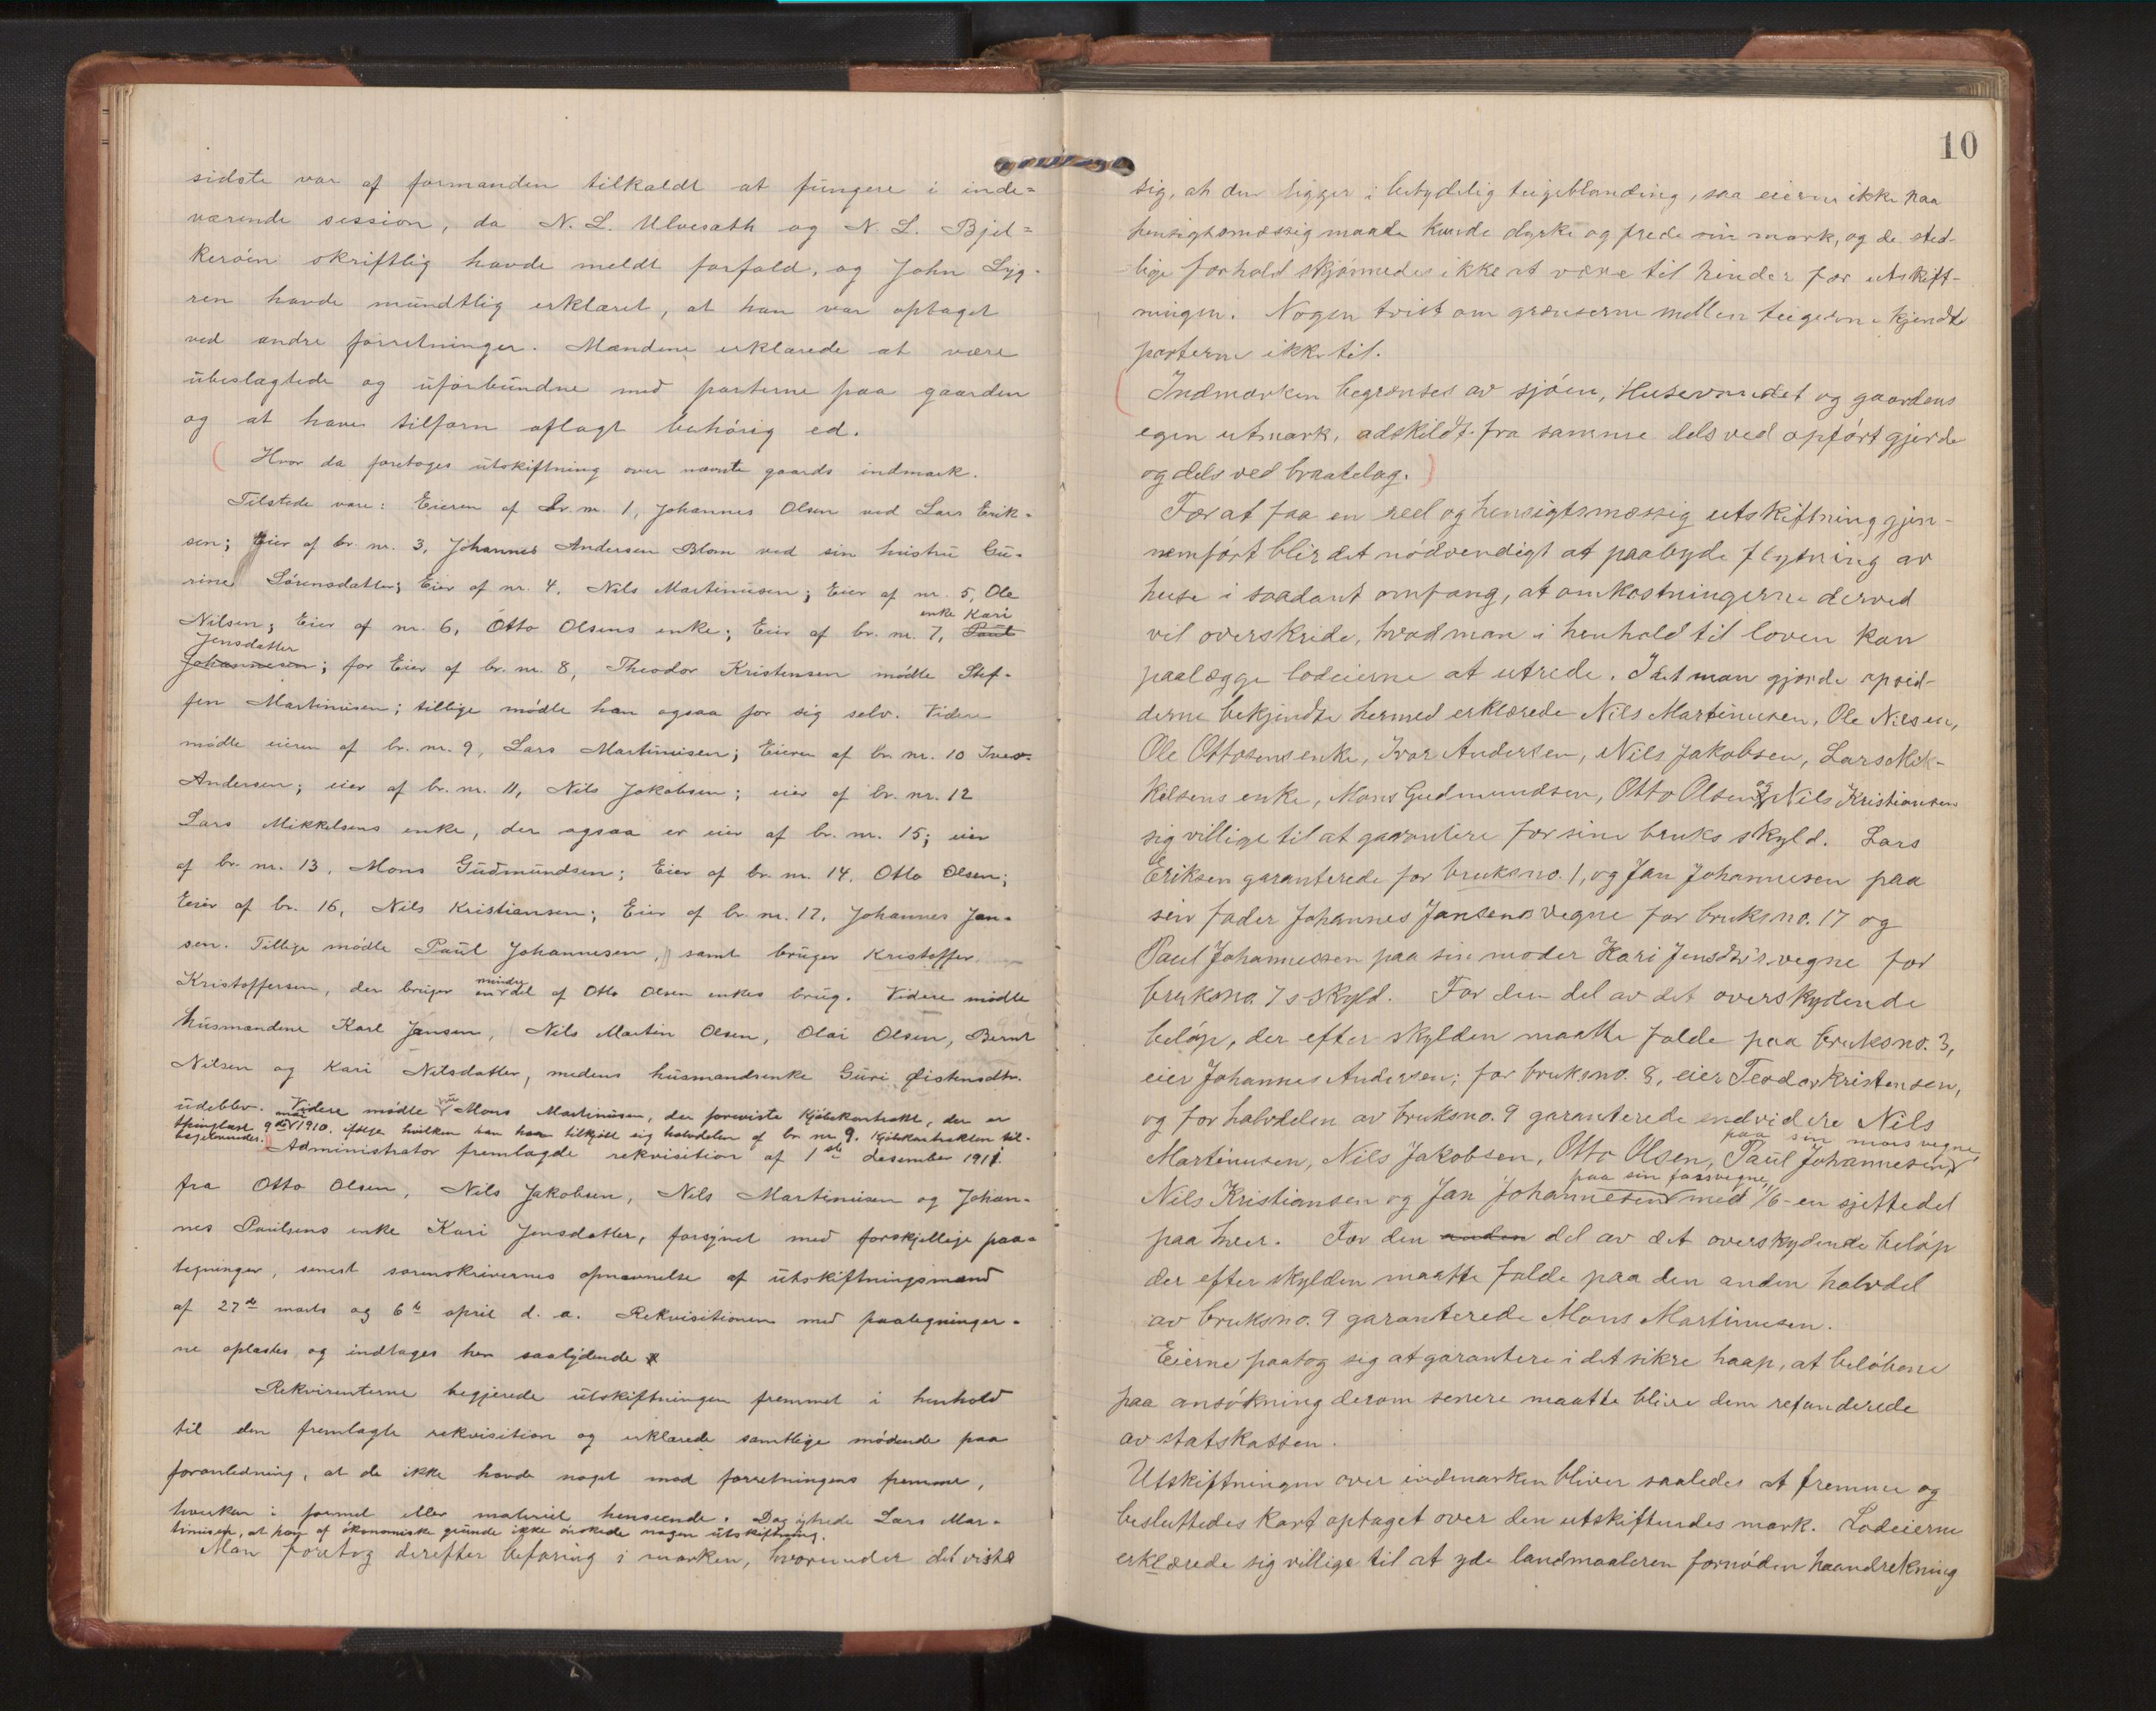 sidste var af formanden tilkaldt at fungere i inde=
værende session, da N. L. Ulvesæth og N. L. Bjel=
keröen skriftlig havde meldt forfald, og John Lyg-
ren havde mundtlig erklæret, at han var optaget
ved andre forretninger. Mændene erklærede at være
ubeslægtede og uforbundne med parterne paa gaarden
og at have tilforn aflagt behörig ed.
Hvor da foretoges utskiftning over nævnte gaards indmark.
Tilstede vare: Eieren af br. nr. 1, Johannes Olsen ved Lars Erik-
sen; Eier af br. nr. 3, Johannes Andersen Blom ved sin hustru Gu-
rine Sörensdatter; Eier af nr. 4, Nils Martinusen; Eier af nr. 5, Ole
enke Kari
Nilsen; Eier af nr. 6, Otto Olsens enke; Eier af br. nr. 7, Paul
Jensdatter
Johannesen; for Eier af br. nr. 8, Theodor Kristensen mödte Stef-
fen Martinusen; tillige mödte han ogsaa for sig selv. Videre
mödte eieren af br. nr. 9, Lars Martinusen; Eieren af br. nr. 10 Ivar
Andersen; eier af br. nr. 11, Nils Jakobsen; eier af br. nr. 12
Lars Mikkelsens enke, der ogsaa er eier af br. nr. 15; eier
af br. nr. 13, Mons Gudmundsen; Eier af br. nr. 14, Otto Olsen;
Eier af br. 16, Nils Kristiansen; Eier af br. nr. 17, Johannes Jan-
sen. Tillige mödte Paul Johannesen, samt bruger Kristoffer
mindre
Kristoffersen, der bruger en del af Otto Olsen enkes brug. Videre mödte
husmændene Karl Jansen, Nils Martin Olsen, Olai Olsen, Bernt
Nilsen og Kari Nilsdatter, medens husmandsenke Guri Östensdtr.
udeblev. Videre mödte nu Mons Martinusen, der foreviste kjöbekontrakt, der er
thinglæst 9de mai 1910, ifölge hvilken han har tilkjöbt sig halvdelen af br. nr. 9. Kjöbekontrakten til-
bageleveredes.
Administrator fremlagde rekvisition af 1ste desember 1911
fra Otto Olsen, Nils Jakobsen, Nils Martinusen og Johan-
nes Paulsens enke Kari Jensdatter, forsynet med forskjellige paa-
tegninger, senest sorenskriverens opnævnelse af utskiftningsmænd
af 27de marts og 6te april d. a. Rekvisitionen med paategninger-
ne oplæstes og indtages her saalydende
Rekvirenterne begjerede utskiftningen fremmet i henhold
til den fremlagte rekvisition og erklærede samtlige mödende paa
foranledning, at de ikke havde noget mod forretningens fremme,
hverken i formel eller materiel henseende. Dog ytrede Lars Mar-
tinusen, at han af ökonomiske grunde ikke önskede nogen utskiftning.
Man foretog derefter befaring i marken, hvorunder det viste
10
sig, at den ligger i betydelig teigeblanding, saa eierne ikke paa
hensigtsmæssig maate kunde dyrke og frede sin mark, og de sted-
lige forhold skjönnedes ikke at være til hinder for utskift-
ningen. Nogen tvist om grænserne mellem teigerne kjendte
parterne ikke til.
Indmarken begrænses av sjöen, Husevandet og gaardens
egen utmark, adskildt fra samme dels ved opfört gjerde
og dels ved braatelag.
For at faa en reel og hensigtsmæssig utskiftning gjen-
nemfört blir det nödvendigt at paabyde flytning av
huse i saadant omfang, at omkostningerne derved
vil overskride, hvad man i henhold til loven kan
paalægge lodeierne at utrede. Idet man gjorde opsid-
derne bekjendte hermed erklærede Nils Martinusen, Ole Nilsen,
Ole Ottosens enke, Ivar Andersen, Nils Jakobsen, Lars Mik-
kelsens enke, Mons Gudmundsen, Otto Olsen og Nils Kristiansen
sig villige til at garantere for sine bruks skyld. Lars
Eriksen garanterede for bruksno. 1, og Jan Johannesen paa
sin fader Johannes Jansens vegne for bruksno. 17 og
Paul Johannessen paa sin moder Kari Jensdtr's vegne for
bruksno. 7s skyld. For den del av det overskydende
belöp, der efter skylden maatte falde paa bruksno. 3,
eier Johannes Andersen; for bruksno. 8, eier Teodor Kristensen,
og for halvdelen av bruksno. 9 garanterede endvidere Nils
paa sin mors vegne,
Martinusen, Nils Jakobsen, Otto Olsen, Paul Johannesen
paa sin farsvegne,
Nils Kristiansen og Jan Johannesen med 1/6 - en sjettedel
paa hver. For den anden del av det overskydende belöp
der efter skylden maatte falde paa den anden halvdel
av bruksno. 9 garanterede Mons Martinusen.
Eierne paatog sig at garantere i det sikre haap, at belöbene
paa ansökning derom senere maatte blive dem refunderede
av statskassen.
Utskiftningen over indmarken bliver saaledes at fremme og
besluttedes kart optaget over den utskiftendes mark. Lodeierne
erklærede sig villige til at yde landmaaleren fornöden haandrekning